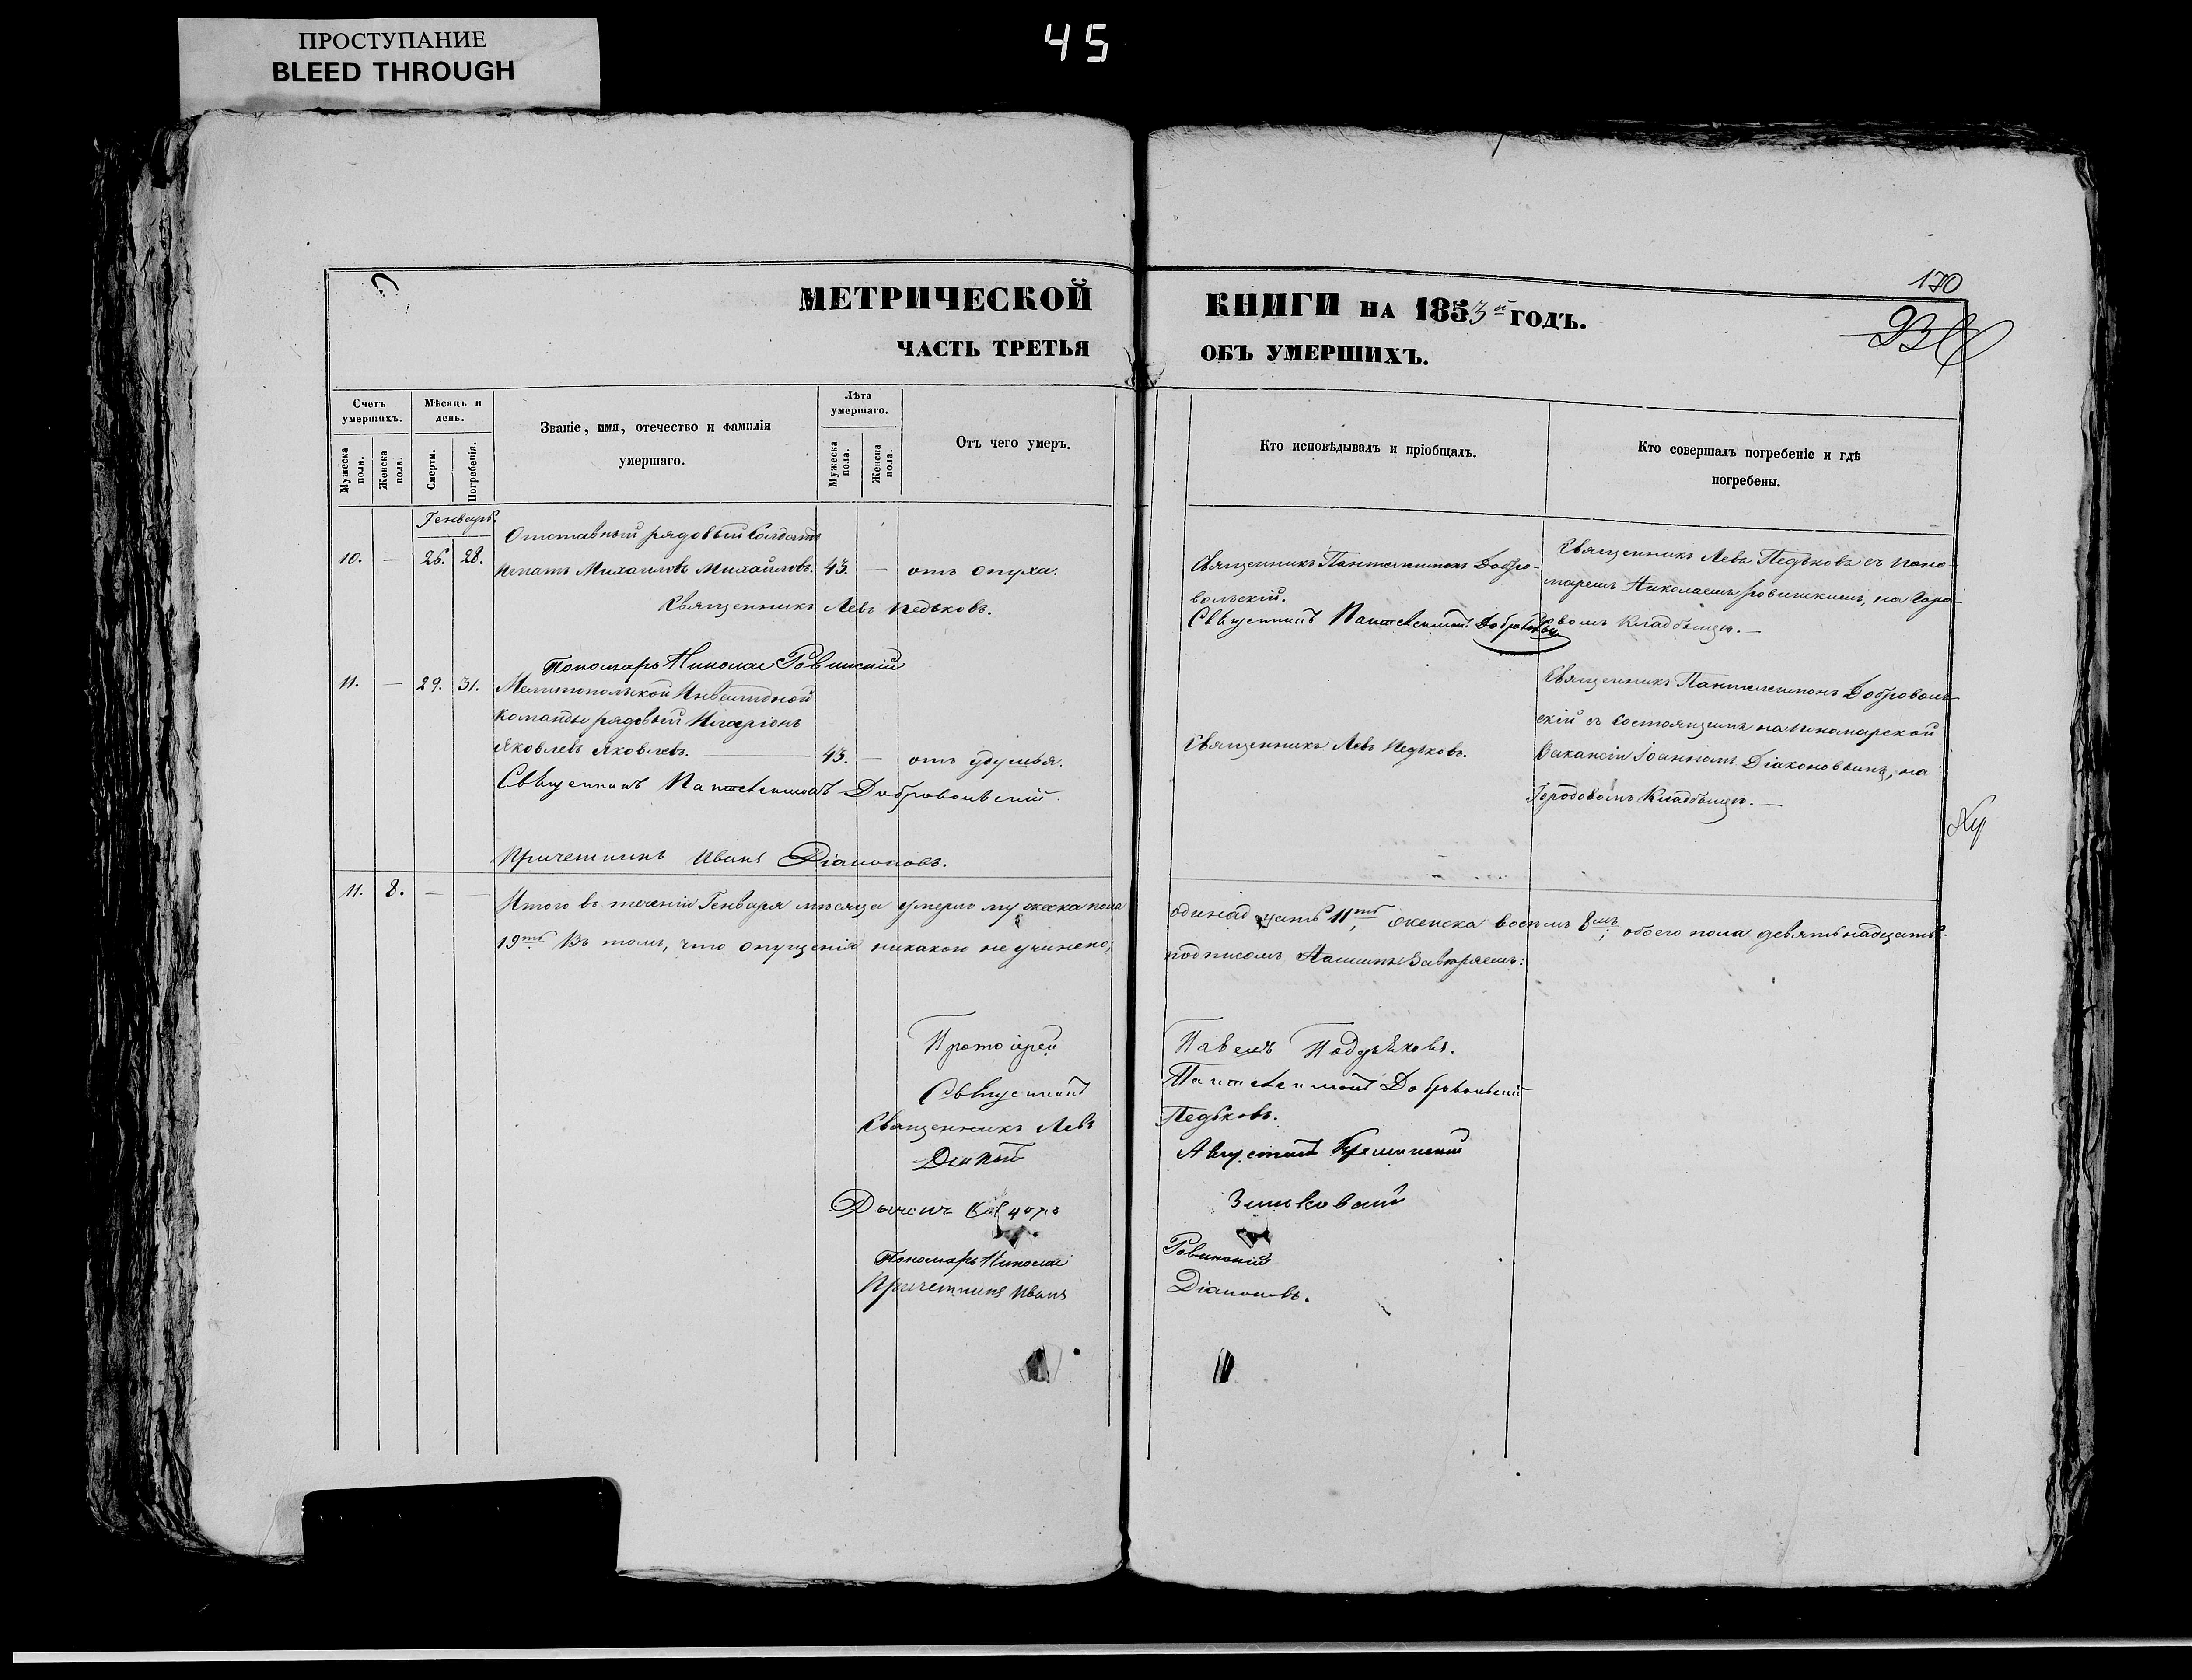 ПРОСТУПАНИЕ
BLEED THROUGH
45
180
МЕТРИЧЕСКОЙ КНИГИ НА 1853й ГОДЪ.
ЧАСТЬ ТРЕТЬЯ ОБЪ УМЕРШИХЪ.
Счетъ умершихъ.
Мужеска пола.
Женска пола.
Мѣсяцъ и день.
Смерти.
Погребенія.
Званіе, имя, отечество и фамилія
умершаго.
Лѣта умершаго.
Мужеска пола.
Женска пола.
Отъ чего умеръ.
Кто исповѣдывалъ и пріобщалъ.
Кто совершалъ погребеніе и гдѣ
погребены.
Генварь.
Отставный рядовый Солдатъ
10. — 26. 28. Игнатъ Михаиловъ Михайловъ. 43. — отъ опуха.
Священникъ Левъ Педьковъ.
Священникъ Пантелеимонъ Добро-
вольскій.
Священникъ Пантелеимонъ Добровольскій
Священникъ Левъ Педьковъ съ Поно-
маремъ Николаемъ Ровинскимъ, на Горо-
довомъ Кладбищѣ. —
Пономарь Николай Ровинскій
11. — 29. 31. Мелитопольской Инвалидной
Команды рядовый Иларіонъ
Яковлевъ Яковлевъ. — 43. — отъ удушья.
Священникъ Пантелеимонъ Добровольскій.
Причетникъ Иванъ Діаконовъ.
Священникъ Левъ Педьковъ.
Священникъ Пантелеимонъ Доброволь-
скій съ состоящимъ на Пономарской
Вакансіи Іоанномъ Діаконовымъ, на
Городовомъ Кладбищѣ. —
11. 8. — — Итого въ теченіи Генваря мѣсяца умерло мужеска пола одинадцать 11ть, женска восемь 8мь; обоего пола девятьнадцать
19ть. Въ томъ, что опущенія никакого не учинено, подписомъ Нашимъ Завѣряемъ:
Протоіерей Павелъ
Священникъ Пантелеимонъ Добровольскій
Священникъ Левъ Педьковъ.
Августинъ
Зиньковскій
Пономарь Николай Ровинскій
Причетникъ Иванъ Діаконовъ.